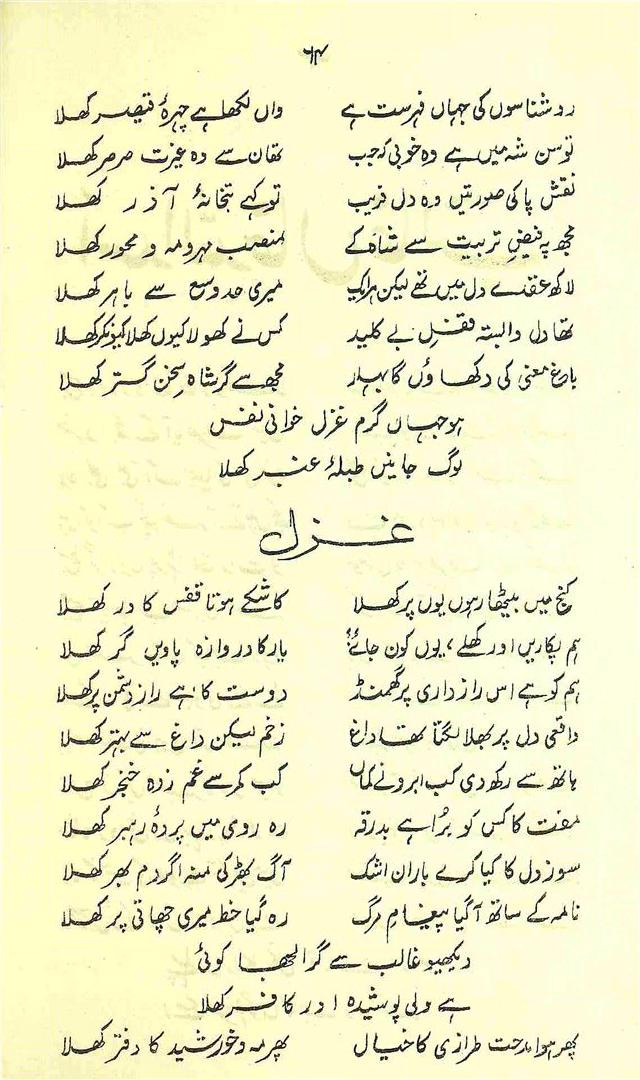 ۶۴
روشناسوں کی جہاں فہرست ہے واں لکھا ہے چہرۂ قیصر کھلا
توسن شہ میں ہے وہ خوبی کہ جب تھان سے وہ غیرت صرصر کھلا
نقش پا کی صورتیں وہ دل فریب تو کہے بتخانۂ آذر کھلا
مجھ پہ فیضِ تربیت سے شاہ کے منصب مہر و مہ و محور کھلا
لاکھ عقدے دل میں تھے لیکن ہر ایک میری حد وسع سے باہر کھلا
تھا دل وابستہ قفلِ بے کلید کس نے کھولا کیوں کھلا کیونکر کھلا
باغ معنی کی دکھاؤں گا بہار مجھ سے گر شاہ سخن گستر کھلا
ہو جہاں گرم غزل خوانی نفس
لوگ جانیں طبلۂ عنبر کھلا
غزل
کنج میں بیٹھا رہوں یوں پر کھلا کاشکے ہوتا قفس کا در کھلا
ہم پکاریں اور کھلے، یوں کون جائے یار کا دروازہ پاویں گر کھلا
ہم کو ہے اس رازداری پر گھمنڈ دوست کا ہے راز دشمن پر کھلا
واقعی دل پر بھلا لگتا تھا داغ زخم لیکن داغ سے بہتر کھلا
ہاتھ سے رکھ دی کب ابرو نے کماں کب کمر سے غمزہ خنجر کھلا
مفت کا کس کو برُا ہے بدرقہ رہ روی میں پردۂ رہبر کھلا
سوز دل کا کیا کرے باران اشک آگ بھڑکی منہ اگر دم بھر کھلا
نامہ کے ساتھ آگیا پیغامِ مرگ رہ گیا خط میری چھاتی پر کھلا
دیکھیو غالب سے گر الجھا کوئی
ہے ولی پوشیدہ اور کافر کھلا
پھر ہوا مدحت طرازی کا خیال پھر مہ و خورشید کا دفتر کھلا